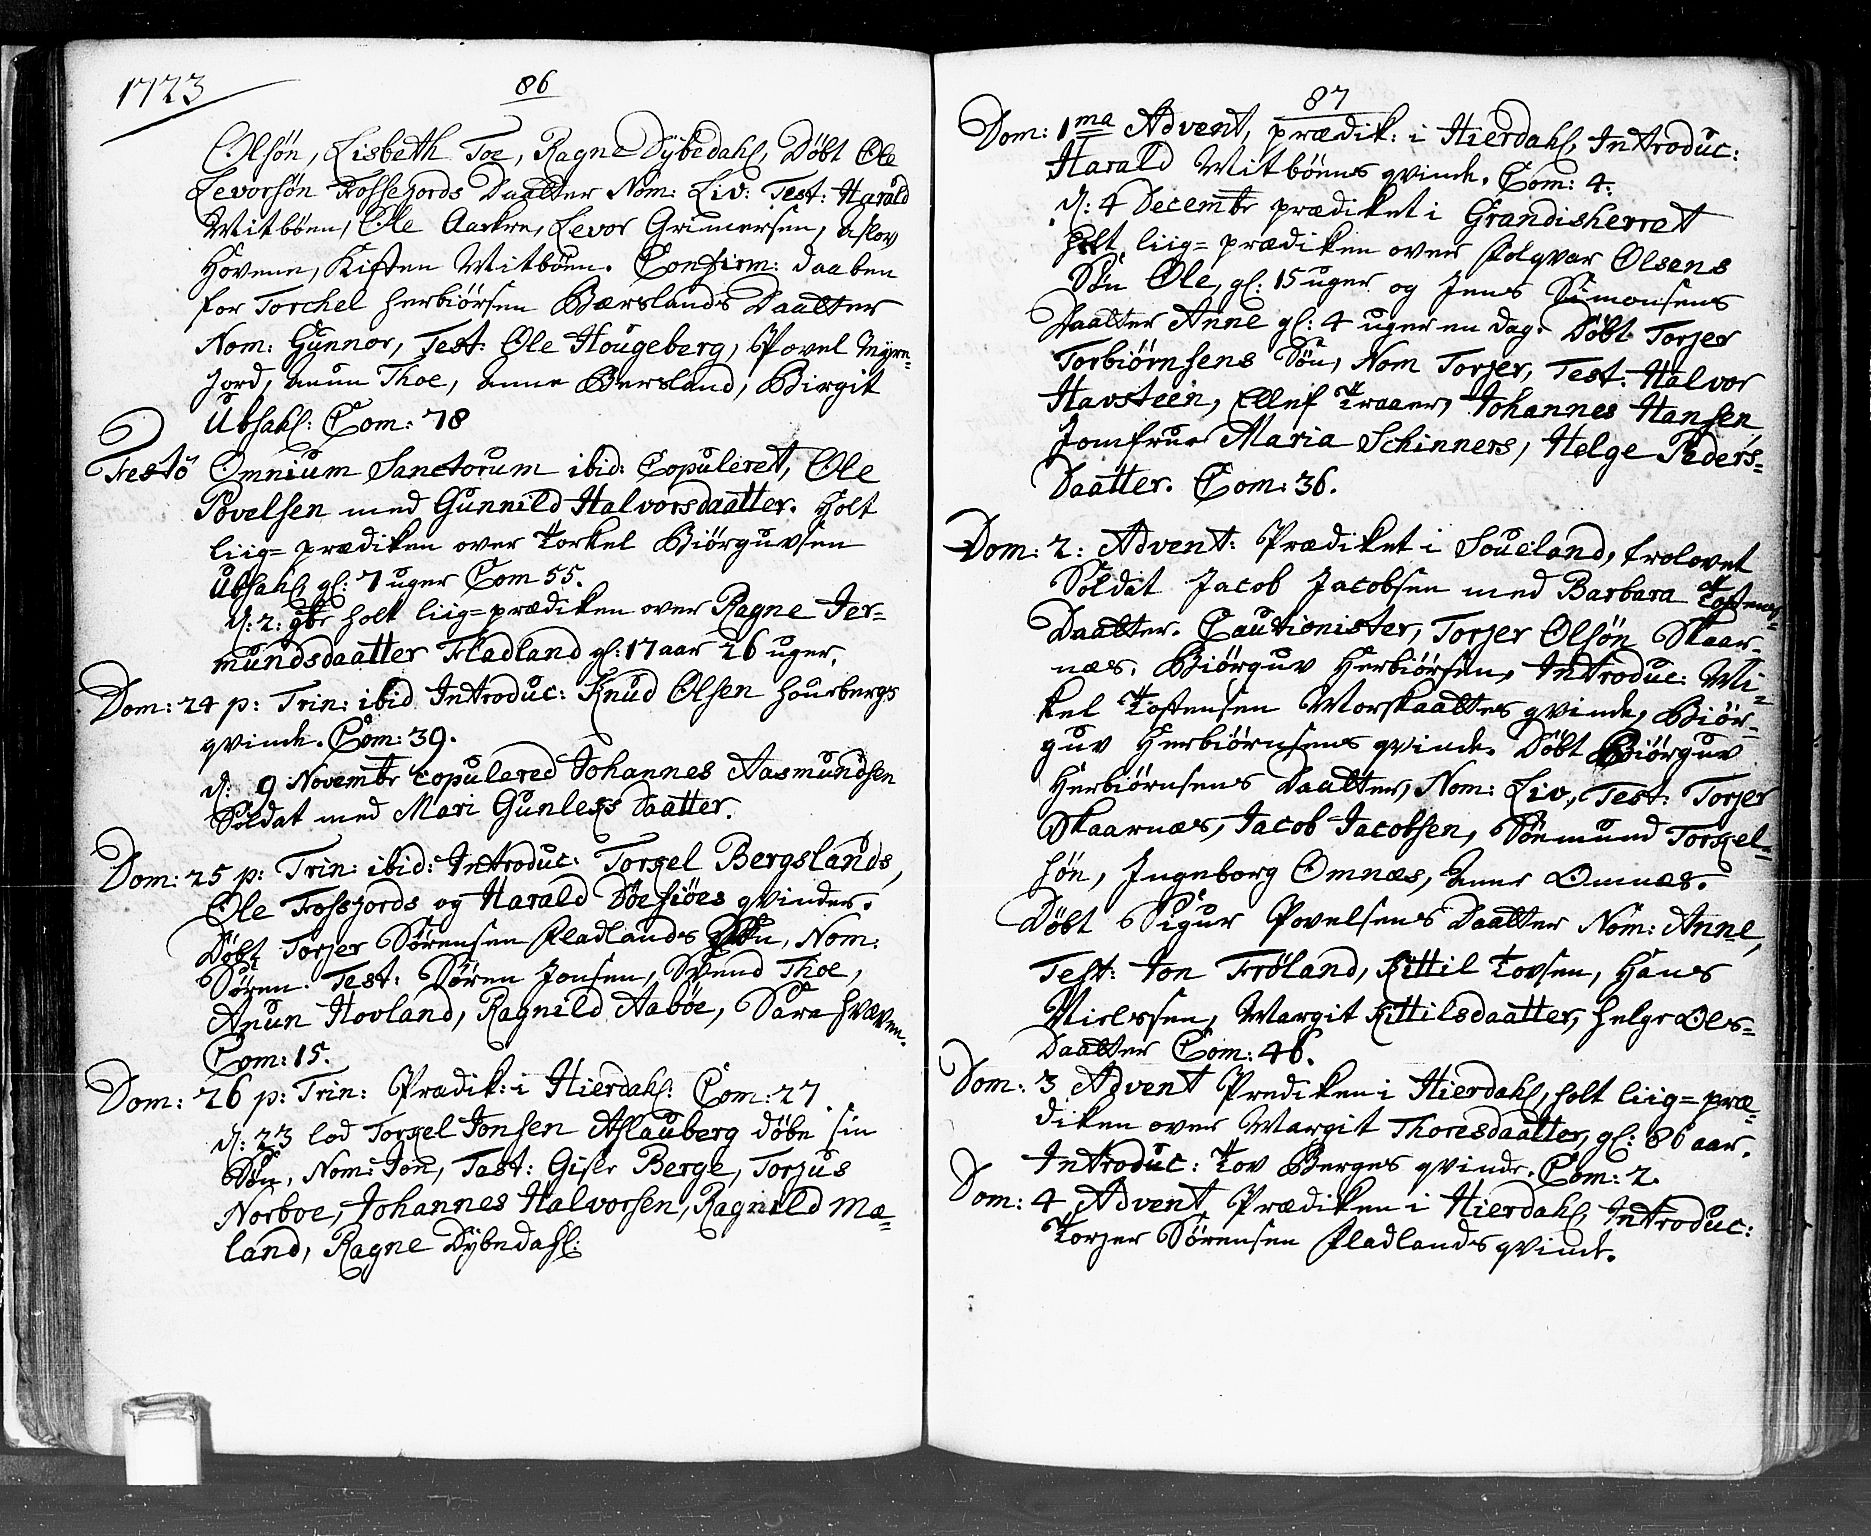 1723
86
Olsøn, Lisbeth Toe, Ragne Dybedahl, Døbt Ole
Levorsøn Fossejords Daatter Nom: Liv: Test: Harald
Mitbøen, Ole Aackre, Levor Grimersen, Aslov
Hovene, Kisten Mitbøen. Confirm: daaben
for Torchel Herbiørsen Bærslands Daatter
Nom: Gunnor, Test: Ole Hougeberg, Povel Myre-
Jord, Anun Thoe, Anne Bersland, Birgit
Ubsahl: Com: 78
Festo Omnium Sanctorum ibid: Copuleret, Ole
Povelsen med Gunnild Halvorsdaatter. Holt
liig=prædiken over Torkel Biørguvsen
Ubsahl gl: 7 uger Com 55.
d: 2: 9br holt liig=prædiken over Ragne Jer-
mundsdaatter Fladland gl: 17 aar 26 uger.
Dom: 24 p: Trin: ibid Introduc: Knud Olsen Hourbergs
qvinde. Com: 39.
d: 9 Novembr copulered Johannes Aasmundsen
Soldat med Mari Gunlegs Daatter.
Dom: 25 p: Trin: ibid: Introduc: Torgel Bergslands,
Ole Fossjords og Harald Døesiøes qvinder.
Døbt Torjer Sørensen Fladlands Søn, Nom:
Søren. Test: Søren Jonsen, Svend Thoe,
Anun Hovland, Ragnild Aabøe, Sara Hvæven.
Com: 15.
Dom: 26 p: Trin: Prædik: i Hierdahl: Com: 27.
d: 23 lod Torgel Jonsen Aslauberg døbe sin
Søn, Nom: Jon, Tast: Gisle Berge, Torjus
Norboe, Johannes Halvorsen, Ragnild Mæ-
land, Ragne Dybedahl:
87
Dom: 1ma Advent, prædik: i Hierdahl, Introduc:
Harald Mitbøens qvinde. Com: 4.
d: 4 Decembr prædiket i Grandisherret
holt liig=prædiken over Folqvar Olsens
Søn Ole, gl: 15 uger og Jens Simonsens
Daatter Anne gl: 4 uger en dag. Døbt Torjer
Torbiørnsens Søn, Nom Torjer, Test: Halvor
Havsteen, Ellef Traaer, Johannes Hansen,
Jomfrue Maria Schinners, Helge Peders-
Daatter. Com: 36.
Dom: 2: Advent: Prædiket i Soueland, trolovet
Soldat Jacob Jacobsen med Barbara Tostens-
Daatter. Cautionister, Torjer Olsøn Skaar-
næs, Biørguv Herbiørsen, Introduc: Mi-
kel Tostensen Morskaattes qvinde, Biør-
guv Herbiørnsens qvinde. Døbt Biørguv
Herbiørnsens Daatter, Nom: Liv, Test: Torjer
Skaarnæs, Jacob Jacobsen, Sønmund Torgel-
søn, Ingeborg Omnæs, Anne Omnæs.
Døbt Sigur Povelsens Daatter Nom: Anne,
Test: Jon Frøland, Kittil Tovsen, Hans
Nielssen, Margit Kittilsdaatter, Helge Ols-
Daatter Com: 46.
Dom: 3 Advent Prediken i Hierdahl, holt liig=præ-
diken over Margit Thoresdaatter, gl: 86 aar.
Introduc: Tov Berges qvinde. Com: 2.
Dom: 4 Advent Prædiken i Hierdahl, Introduc:
Torjer Sørensen Fladlands qvinde.